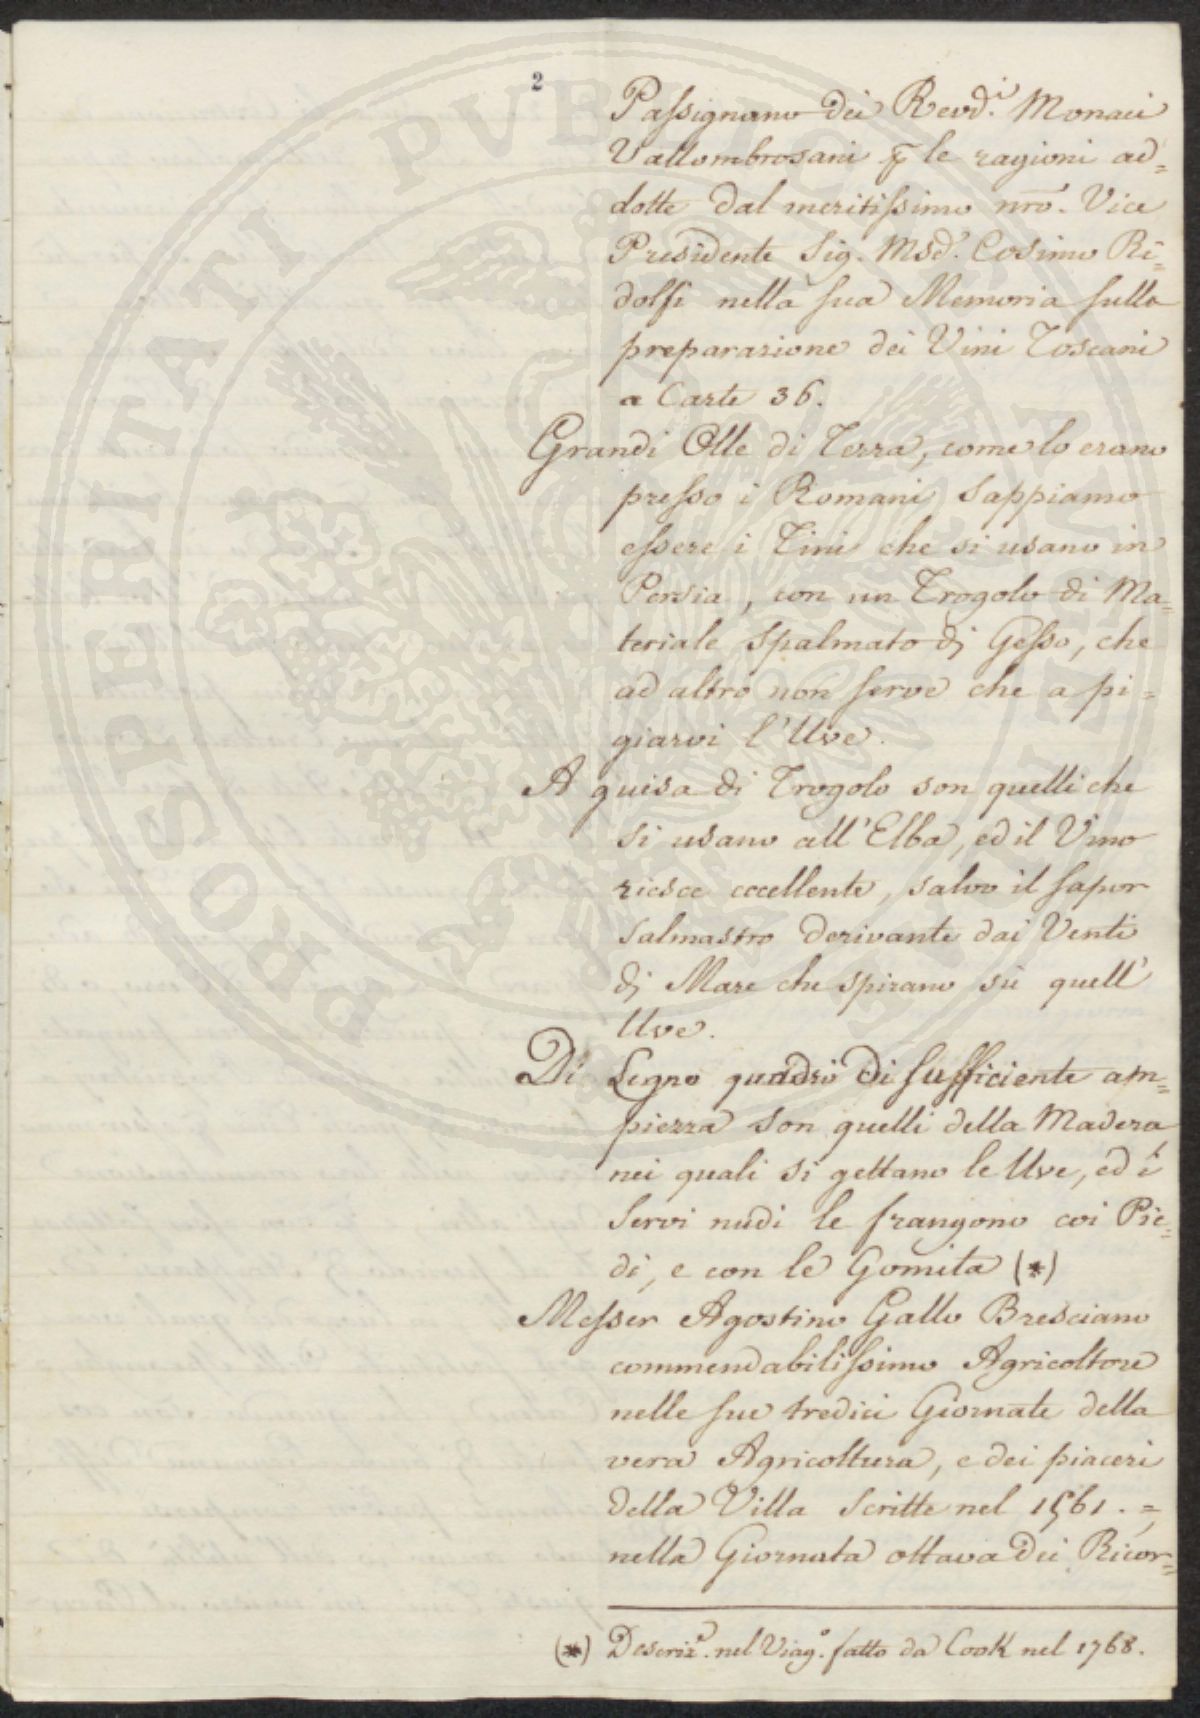 2
Passignano dei Revd.i Monaci
Vallombrosani p le ragioni ad=
dotte dal meritissimo nro. Vice
Presidente Sig. Msẽ. Cosimo Ri=
dolfi nella sua Memoria sulla
preparazione dei Vini Toscani
a Carte 36.
Grandi Olle di Terra, come lo erano
presso i Romani sappiamo
essere i Tini che si usano in
Persia, con un Trogolo di Ma=
teriale spalmato di Gesso, che
ad altro non serve che a pi=
giarvi l'Uve.
A guisa di Trogolo son quelli che
si usano all'Elba, ed il Vino
riesce eccellente, salvo il sapor
salmastro derivante dai Venti
di Mare che spirano sù quell'
Uve.
Di Legno quadri di sufficiente am=
piezza son quelli della Madera
nei quali si gettano le Uve, ed i
Servi nudi le frangono coi Pie=
di, e con le Gomita (*)
Messer Agostino Gallo Bresciano
commendabilissimo Agricoltore
nelle sue tredici Giornate della
vera Agricoltura, e dei piaceri
della Villa scritte nel 1561. =
nella Giornata ottava dei Ricor=
(*) Descrize. nel Viago. fatto da Cook nel 1768.
PROSPERITATI PUBLICAE AUGENDAE